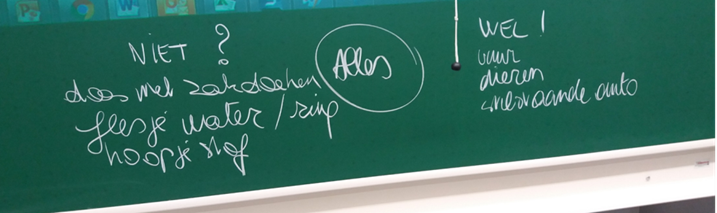 NIET ?
doos met zakdoeken
flesje water / ring
hoopje stof
Alles
WEL !
vuur
dieren
snelrijdende auto